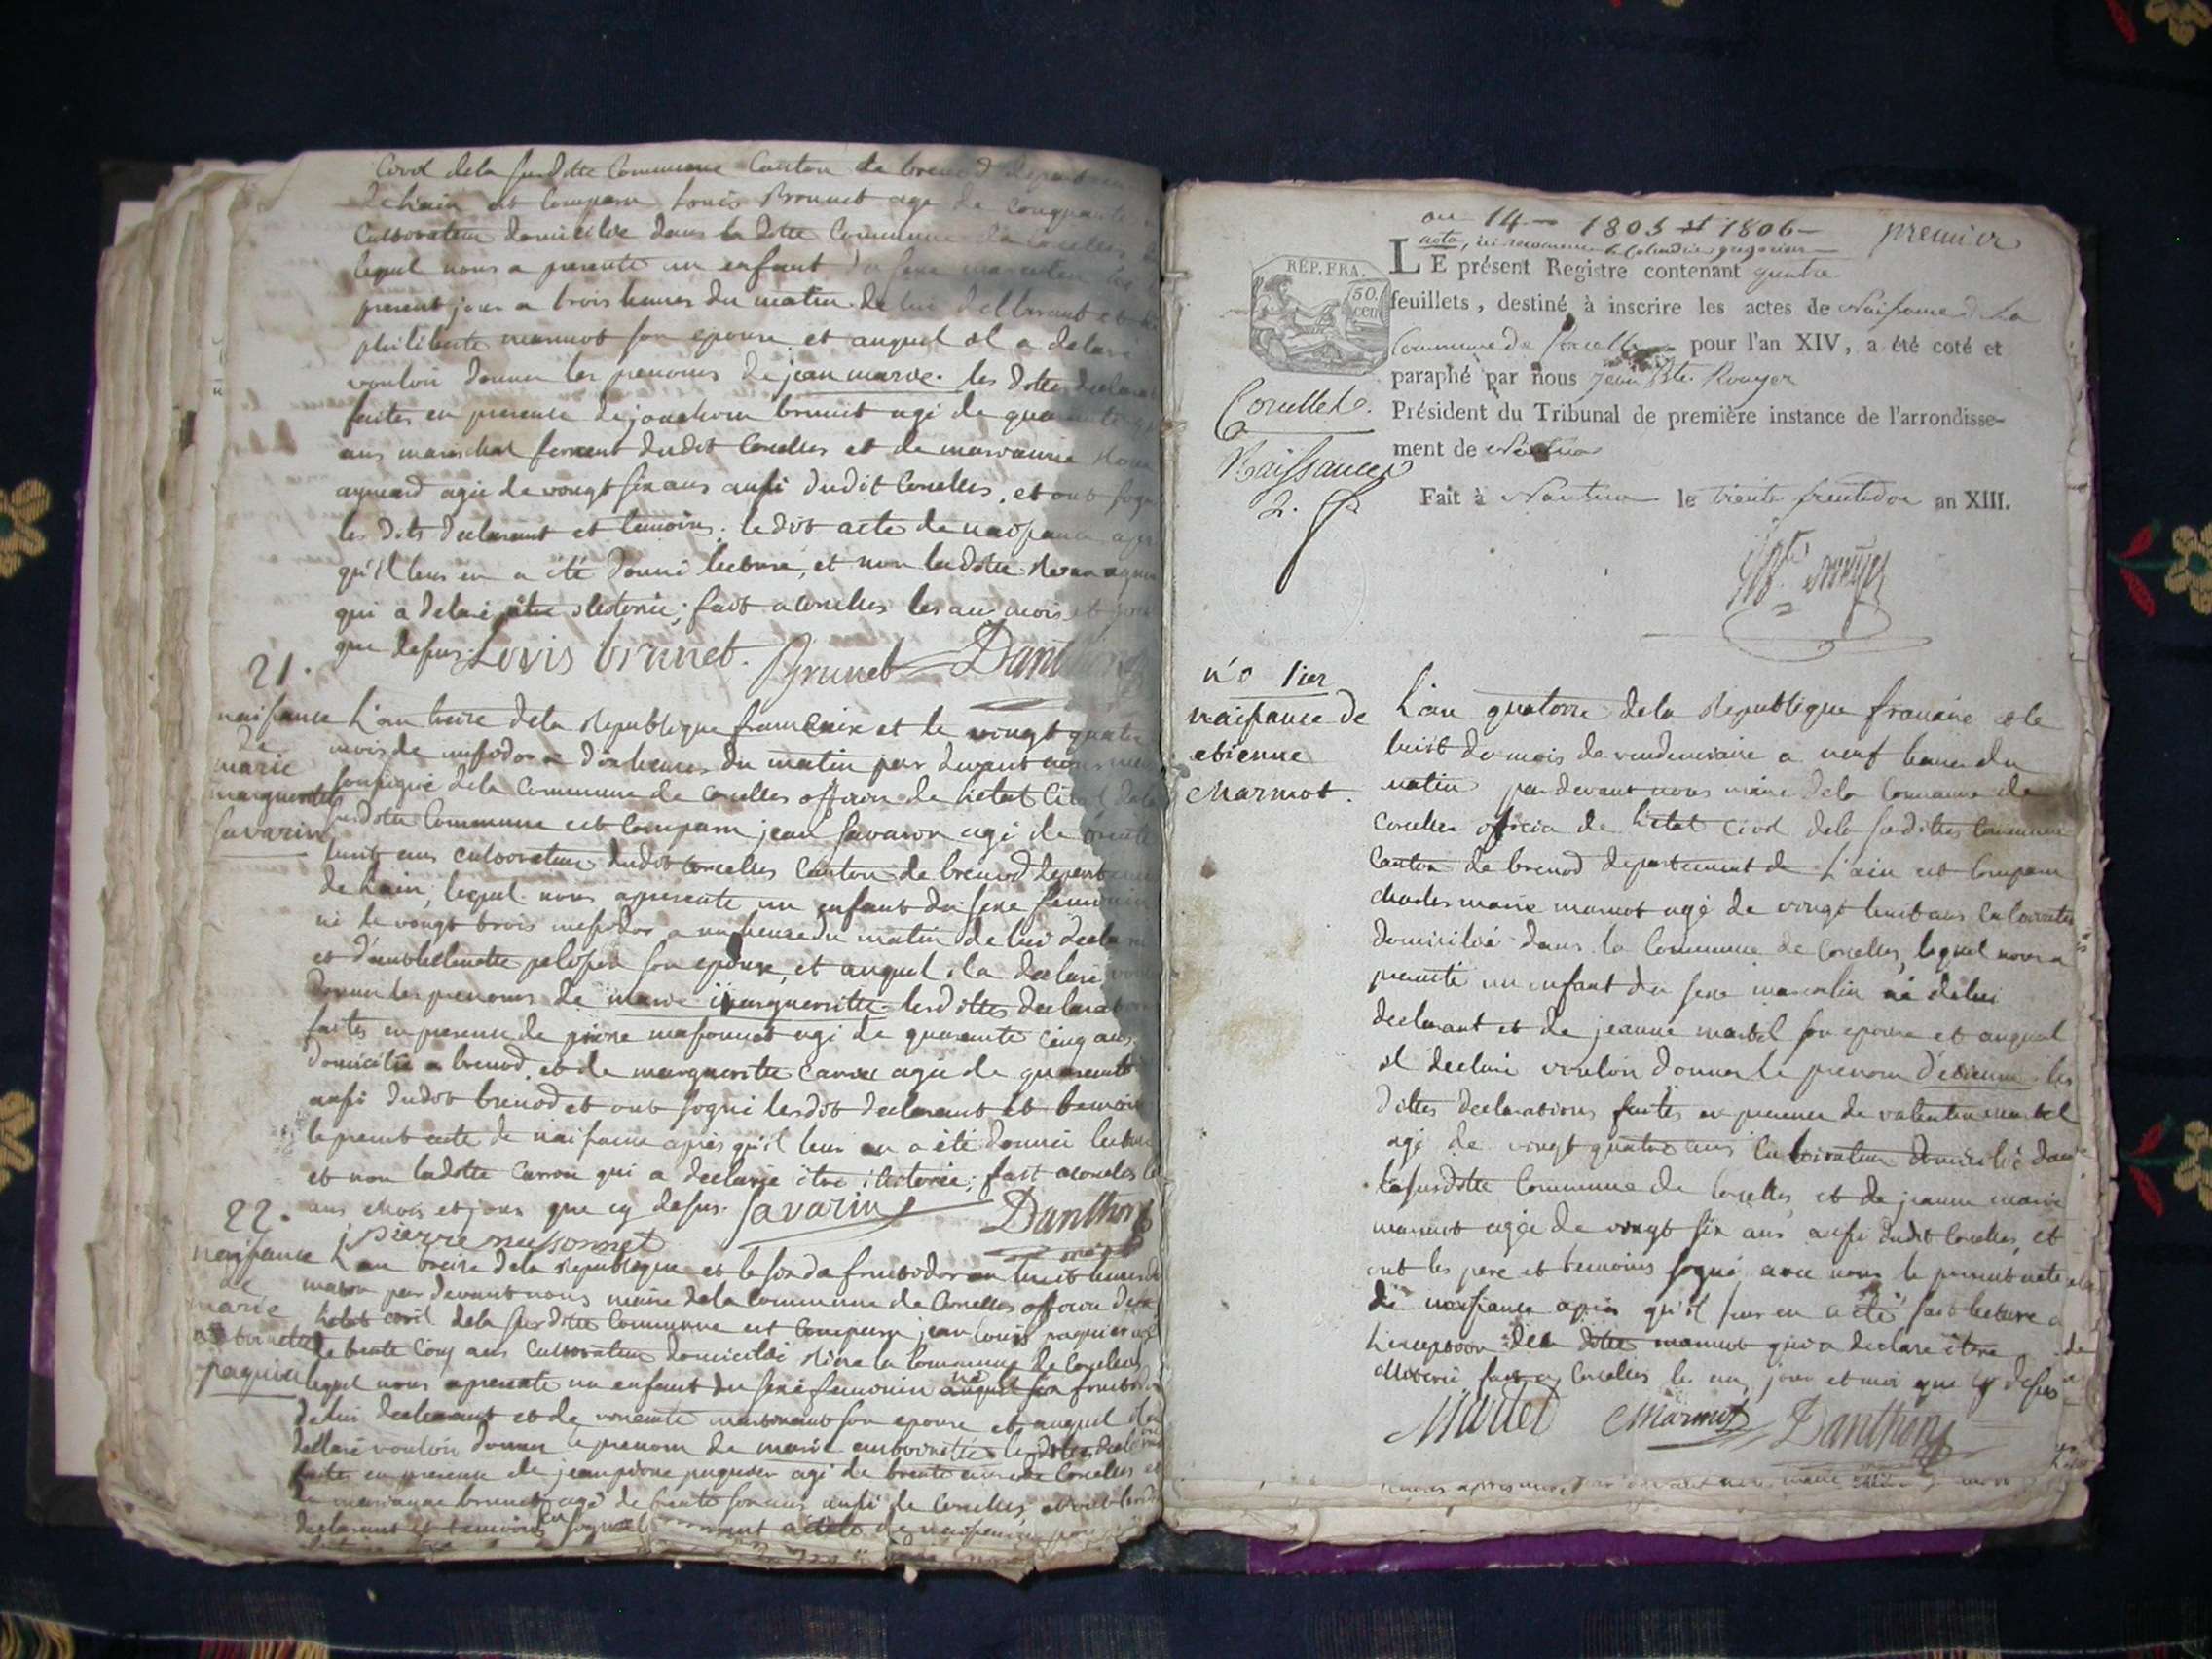 Civil dela susditte Commune Canton de brenod departem
de Lain est Comparu Louis Brunet age de Cinquante
Cultivateur domicilié dans la ditte Commune de Corcelles
lequel nous a presenté un enfant du sexe masculin
present jour a trois heures du matin de lui declarant et de
philiberte marmot son epouse et auquel il a declaré
vouloir donner les prenoms de jean marie. les dittes declarat
faites en presence de joachim brunet agé de quarante
ans marechal ferrent dudit Corcelles et de marianne
aymard agée de vingt six ans aussi dudit Corcelles, et ont signé
les dits declarant et temoins. le dit acte de naissance apr
qu'il leur en a été donné lecture, et non la ditte
qui a delaré être illetorée; fait a Corcelles les an mois et jour
que desus. Lovis brunet. Brunet Danthon
21.
naissance
de
marie
marguerite
Savarin
L'an treize dela Republique francaise et le vingt quatre
mois de messidor a dix heures du matin par devant nous maire
soussigné dela Commune de Corcelles officier de l'etat Civil dela
susditte Commune est Comparu jean Savarin agé de trente
huit ans cultivateur dudit Corcelles Canton de brenod departem
de Lain, lequel nous a presenté un enfant du sexe feminin
né le vingt trois messidor a une heure du matin de lui declarant
et d' son epouse, et auquel il a declaré voul
donner les prenoms de marie marguerite lesdittes declarations
faites en presence de pierre massonnet agé de quarante cinq ans
domicilié a brenod, et de marguerite Carron agée de quarante
aussi dudit brenod et ont signé lesdit declarant et temoin
le present acte de naissance après qu'il leur en a été donné lecture
et non laditte Carron qui a declaré être illetorée; fait a Corcelles les
ans mois et jour que cy desus. Savarin Danthon
pierre massonnet
22.
naissance
de
marie
paquier
L'an treize dela Republique et le six de fructidor a huit heures du
matin par devant nous maire dela Commune de Corcelles officier de
l'etat civil dela susditte Commune est Comparu jean Louis paquier agé
de trente Cinq ans Cultivateur domicilié dans la Commune de Corcelles
lequel nous a presenté un enfant du sexe feminin né six fructidor
de lui declarant et de son epouse et auquel il a
declaré vouloir donner le prenom de marie les dittes declarations
faites en presence de jean pierre paquier agé de trente ans de Corcelles et
de marianne brunet agé de trente six ans aussi de Corcelles et ont les dit
declarant et temoins signé acte de naissance
an 14 – 1805 et 1806 – premier
nota, ici recommence le Calendrier gregorien
RÉP. FRA.
50.
CEN
LE présent Registre contenant quatre
feuillets, destiné à inscrire les actes de Naissance de La
Commune de Corcelle pour l'an XIV, a été coté et
paraphé par nous Jean Bte. Rouyer
Président du Tribunal de première instance de l'arrondisse-
ment de Nantua
Fait à Nantua le trente fructidor an XIII.
Corcelles.
Naissances
2.
n°. 1er
naissance de
etienne
Marmot.
L'an quatorze dela Republique francaise et le
huit du mois de vendemiaire a neuf heures du
matin par devant nous maire dela Commune de
Corcelles officier de l'etat civil dela susditte Commune
Canton de brenod departement de L'ain est Comparu
Charles marie marmot agé de vingt huit ans Cultivateur
domicilié dans la Commune de Corcelles, lequel nous a
presenté un enfant du sexe masculin né de lui
declarant et de jeanne martel son epouse et auquel
il declaré vouloir donner le prenom d'etienne. les
dittes declarations faites en presence de valentin martel
agé de vingt quatre ans Cultivateur domicilié dans
la susditte Commune de Corcelles, et de jeanne marie
marmot agée de vingt six ans aussi dudit Corcelles, et
ont les pere et temoins signé avec nous le present acte
de naissance après qu'il leur en a été fait lecture a
l'exception dela ditte marmot qui a declaré être
illetoré fait a Corcelles le an, jour et moi que cy desus
Martel Marmot Danthon